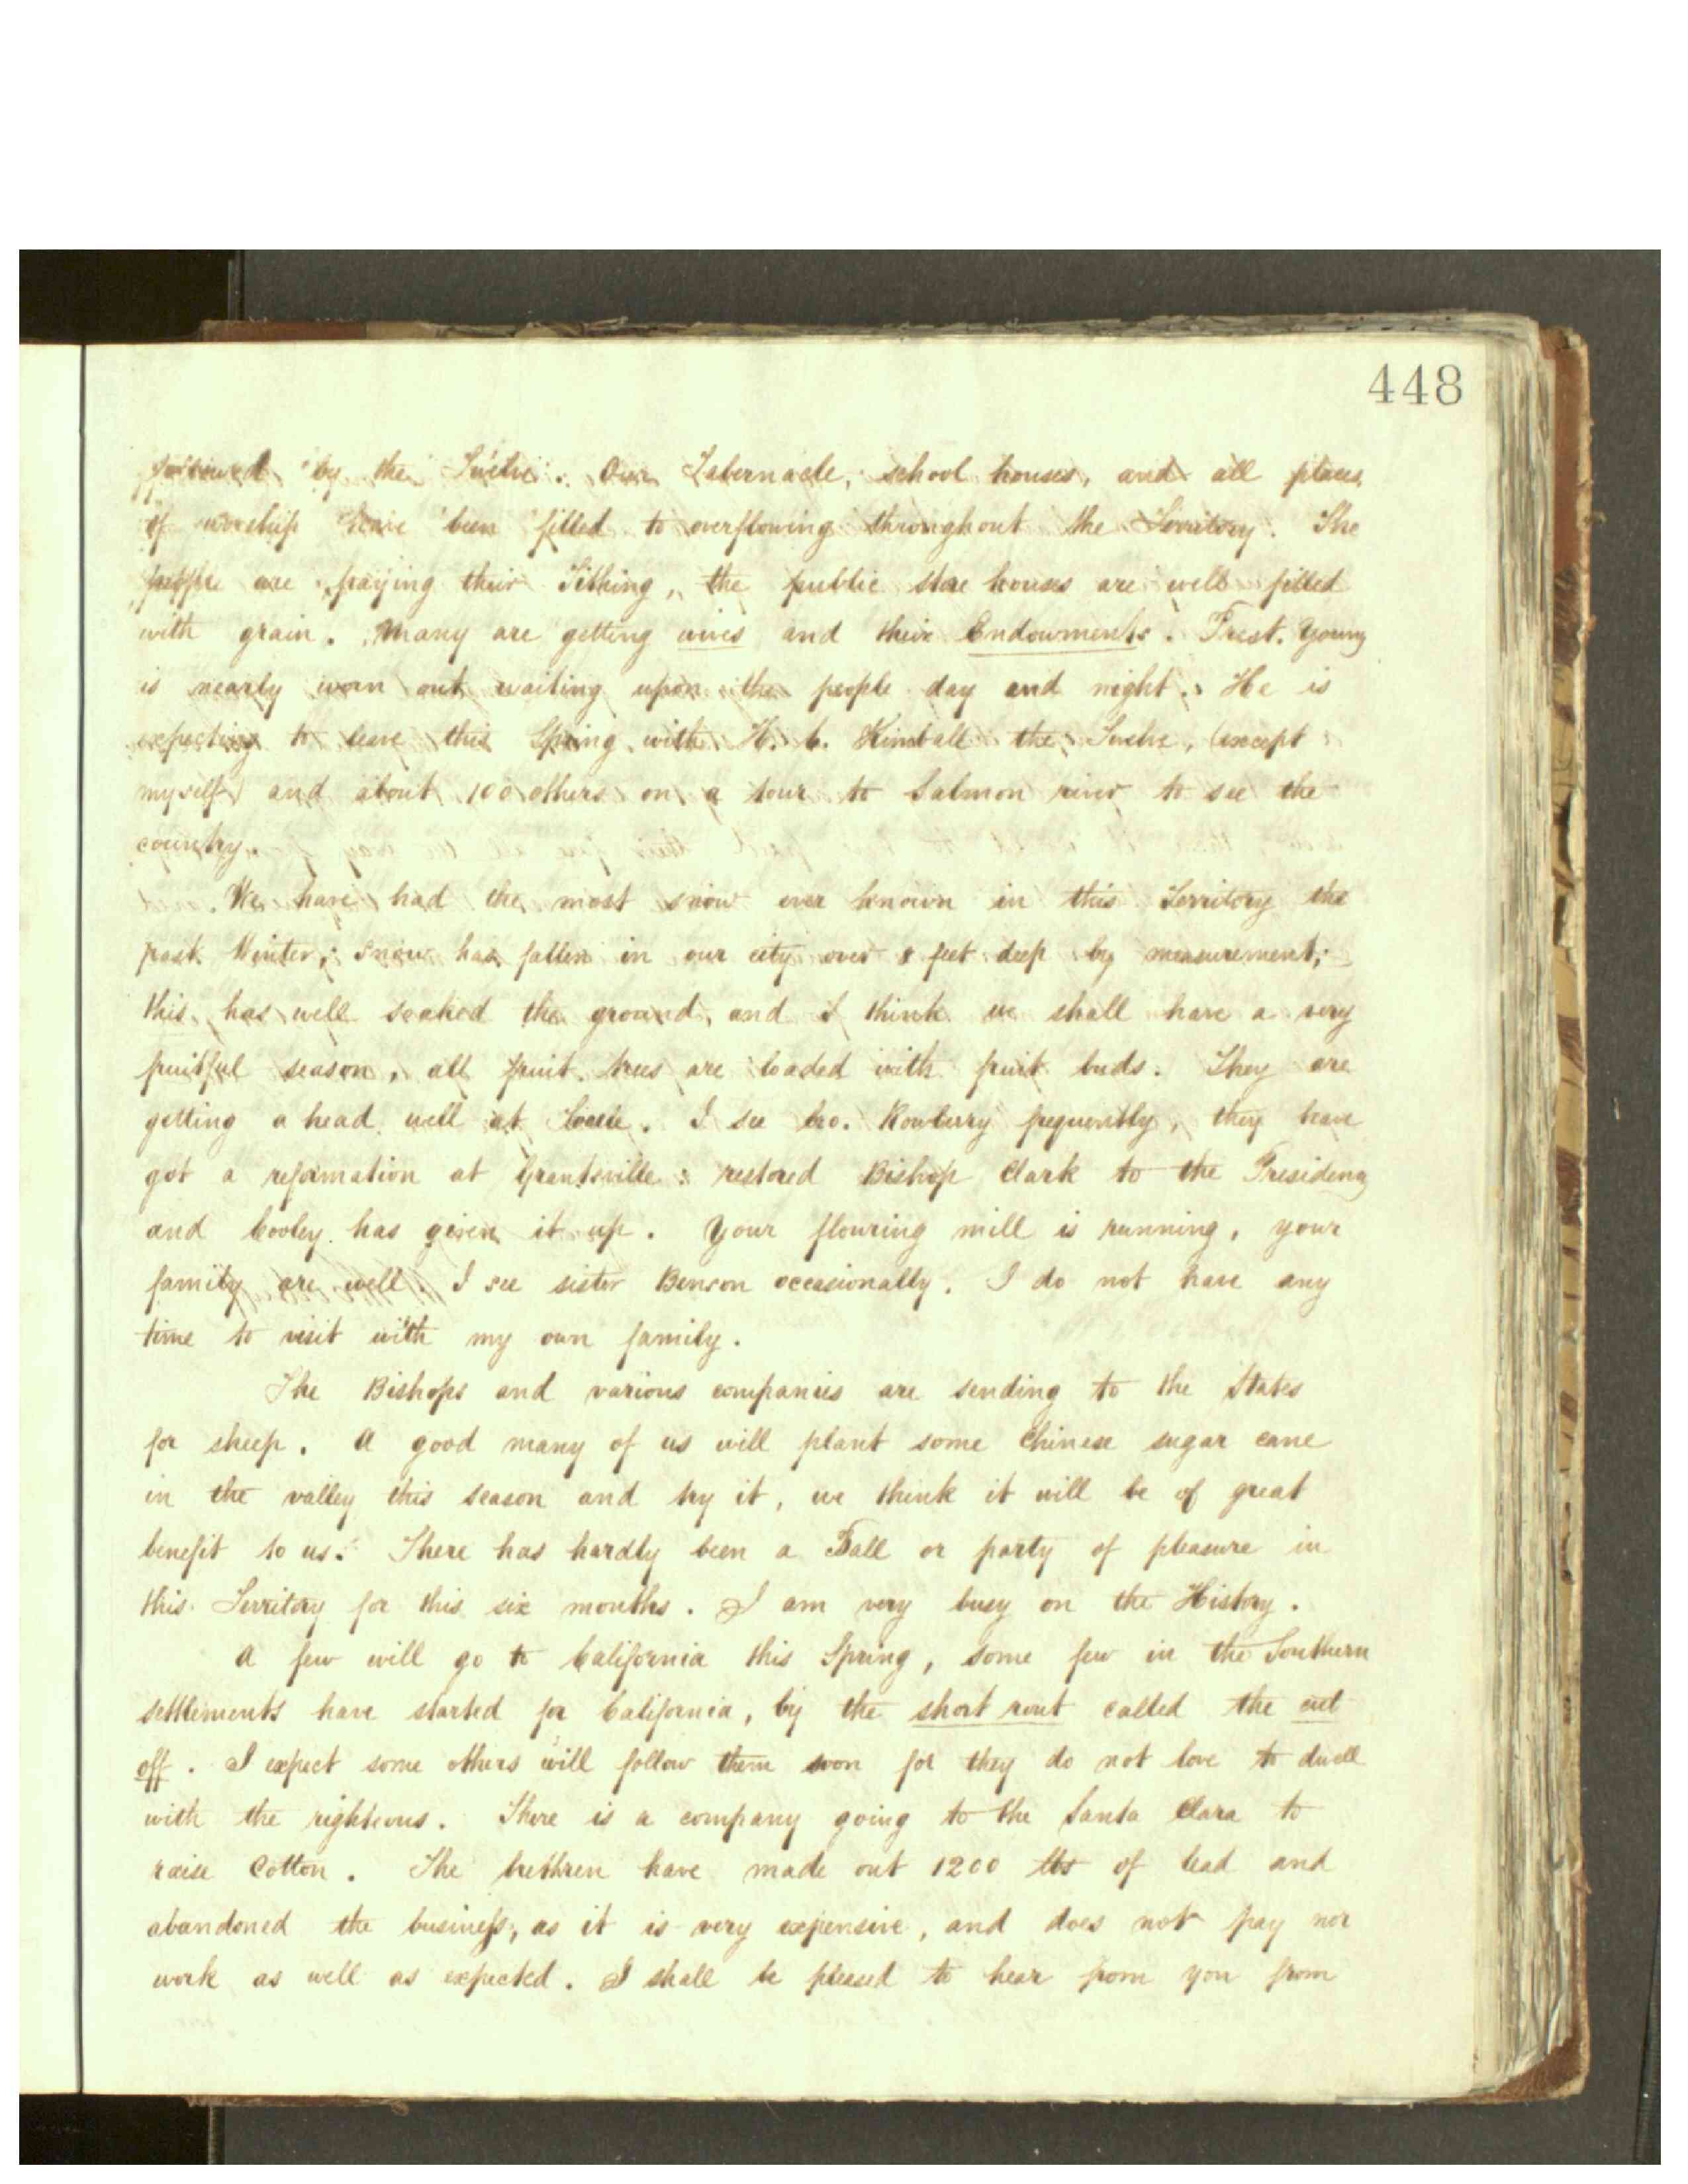 448
followed by the Twelve. Our Tabernacle, school houses, and all places
of worship have been filled to overflowing throughout the Territory. The
people are paying their Tithing, the public store houses are well filled
with grain. Many are getting wives and their Endowments. Prest. Young
is nearly worn out waiting upon the people day and night. He is
expecting to leave this Spring with H. C. Kimball the Twelve, (except
myself) and about 100 others on a tour to Salmon river to see the
country.
We have had the most snow ever known in this Territory the
past Winter; snow has fallen in our city over 8 feet deep by measurement;
this has well soaked the ground, and I think we shall have a very
fruitful season, all fruit trees are loaded with fruit buds. They are
getting a head well at Tooele. I see bro. Rowberry frequently, they have
got a reformation at Grantsville: restored Bishop Clark to the Presidency
and Cooley has given it up. Your flouring mill is running, your
family are well. I see sister Benson occasionally. I do not have any
time to visit with my own family.
The Bishops and various companies are sending to the States
for sheep. A good many of us will plant some Chinese sugar cane
in the valley this season and try it, we think it will be of great
benefit to us. There has hardly been a Ball or party of pleasure in
this Territory for this six months. I am very busy on the History.
A few will go to California this Spring, some few in the Southern
settlements have started for California, by the short rout called the cut
off. I expect some others will follow them soon for they do not love to dwell
with the righteous. There is a company going to the Santa Clara to
raise Cotton. The brethren have made out 1200 lbs of lead and
abandoned the business, as it is very expensive, and does not pay nor
work as well as expected. I shall be pleased to hear from you from